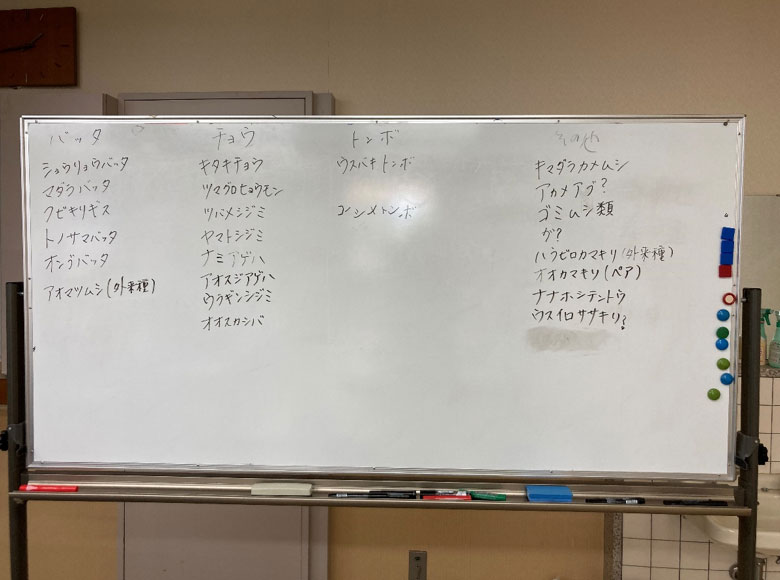 バッタ
ショウリョウバッタ
マダラバッタ
クビキリギス
トノサマバッタ
オンブバッタ
アオマツムシ(外来種)
チョウ
キタキチョウ
ツマグロヒョウモン
ツバメシジミ
ヤマトシジミ
ナミアゲハ
アオスジアゲハ
ウラギンシジミ
オオスカシバ
トンボ
ウスバキトンボ
コシメトンボ
その他
キマダラカメムシ
アカメアグ?
ゴミムシ類
グ?
ハラビロカマキリ(外来種)
オオカマキリ(ペア)
ナナホシテントウ
ウスイロササキリ?